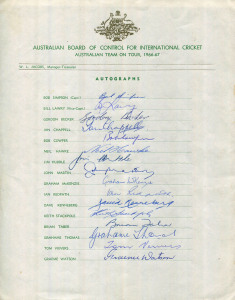 AUSTRALIAN BOARD OF CONTROL FOR INTERNATIONAL CRICKET
AUSTRALIAN TEAM ON TOUR, 1966-67
AUTOGRAPHS
BOB SIMPSON (Capt.)
BILL LAWRY (Vice-Capt.) W Lawry
GORDON BECKER Gordon Becker
IAN CHAPPELL Ian Chappell
BOB COWPER
NEIL HAWKE Neil Hawke
JIM HUBBLE Jim Hubble
JOHN MARTIN
GRAHAM McKENZIE
IAN REDPATH Ian Redpath
DAVE RENNEBERG David Renneberg
KEITH STACKPOLE
BRIAN TABER Brian Taber
GRAHAME THOMAS Grahame Thomas
TOM VEIVERS Tom Veivers
GRAEME WATSON Graeme Watson